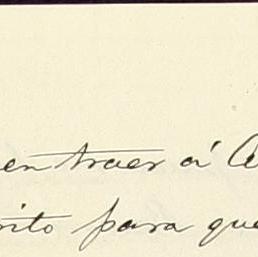 en traer á
rito para que